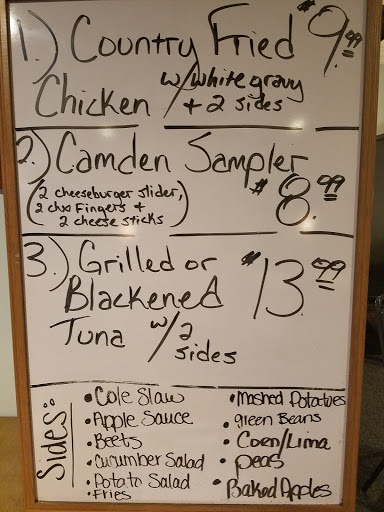 1.) Country Fried $9.99
Chicken w/white gravy
+ 2 sides
2.) Camden Sampler
(2 cheeseburger slider,
2 chx Fingers +
2 cheese sticks) $8.99
3.) Grilled or $13.99
Blackened
Tuna w/2
sides
Sides:
• Cole Slaw
• Apple Sauce
• Beets
• Cucumber Salad
• Potato Salad
• Fries
• Mashed Potatoes
• green Beans
• Corn/Lima
• peas
• Baked Apples